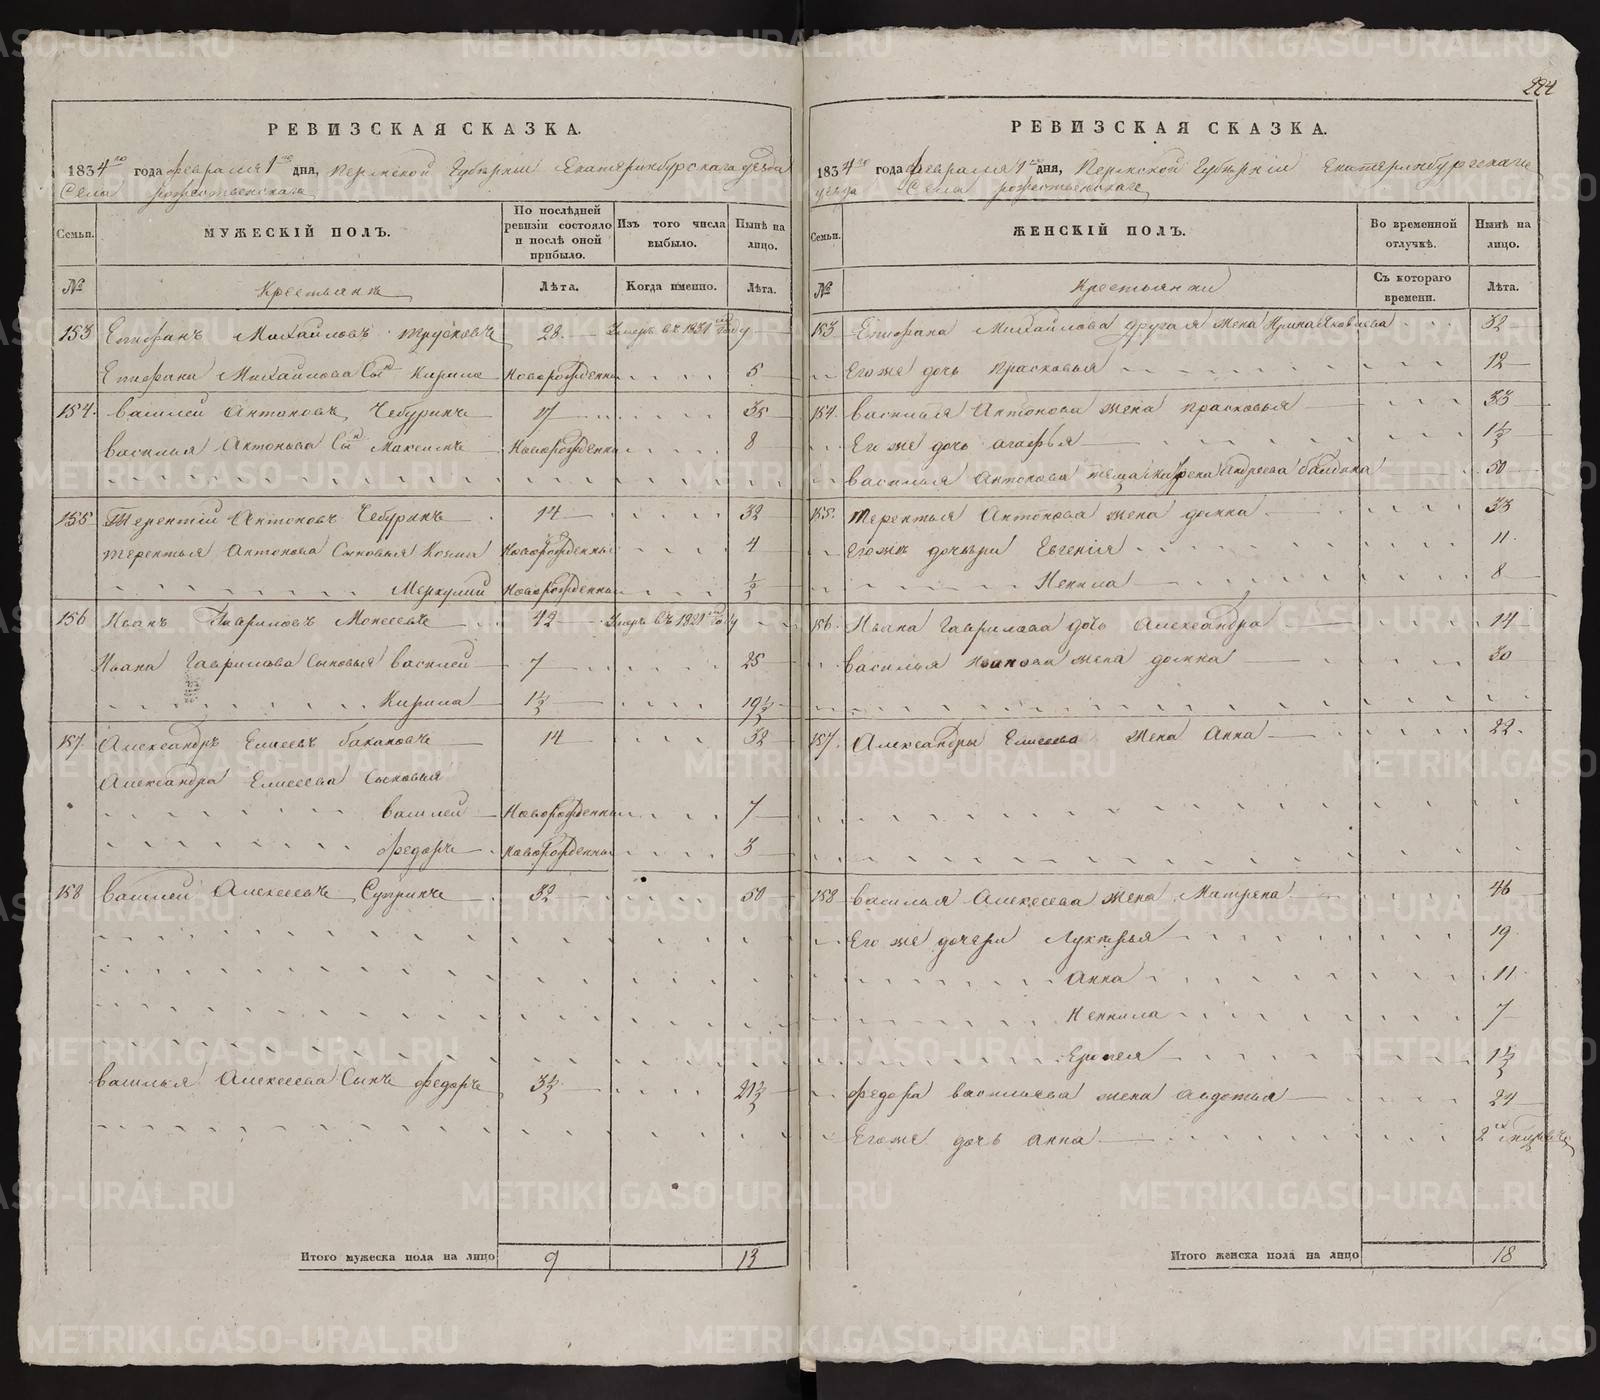 224
РЕВИЗСКАЯ СКАЗКА.
1834го года февраля 1го дня, Пермской Губернии Екатеринбурскага уезда
Села рожественскага
Семьи.
МУЖЕСКІЙ ПОЛЪ.
По послѣдней ревизіи состояло и послѣ оной прибыло.
Изъ того числа выбыло.
Нынѣ на лицо.
№
Крестьянъ
Лѣта.
Когда именно.
Лѣта.
153 Епифанъ Михайловъ 28. Умеръ въ 1831 году
Епифана Михайлова Сынъ Кирила Новорожденны 5
154. василей Антоновъ Чебуринъ 17 35
василья Антонова Сынъ Максимъ Новорожденны 8
155 Терентій Антоновъ Чебуринъ 14 32
терентья Антонова Сыновья Козма Новорожденны 4
Меркулий Новорожденны ½
156 Иванъ Гавриловъ Моисеевъ 42 Умеръ въ 1831 году
Ивана Гаврилова Сыновья василей 7 25
Кирила 1½ 19½
157 Александръ Елисеевъ бакановъ 14 32
Александра Елисеева Сыновья
василей Новорожденны 7
федоръ Новорожденны 3
158 василей Алексеевъ 32 50
василья Алексеева Сынъ федоръ 3½ 21½
Итого мужеска пола на лицо 9 13
РЕВИЗСКАЯ СКАЗКА.
1834го года февраля 1го дня, Пермской Губерніи Екатеринбургскаге
уезда Села рожественскаге
Семьи.
ЖЕНСКІЙ ПОЛЪ.
Во временной отлучкѣ.
Нынѣ на лицо.
№
Крестьянки
Съ котораго времени.
Лѣта.
153 Епифана Михайлова другая жена Ирина Яковлева 32
Егоже дочь прасковья 12
154. василья Антонова жена прасковья 33
Его же дочь агафья 1½
василья Антонова теща Андреева 50
155. терентья Антонова жена домна 33
Егоже дочьри Евгенія 11
Ненила 8
156. Ивана Гаврилова дочь Александра 14
василья Иванова жена домна 30
157. Александры Елисеева жена Анна 22.
158 василья Алексеева жена Матрена 46
Его же дочери Лукерья 19
Анна 11
Ненила 7
1½
федора васильева жена авдотья 24
Егоже дочь анна 2
Итого женска пола на лицо 18
METRIKI.GASO-URAL.RU